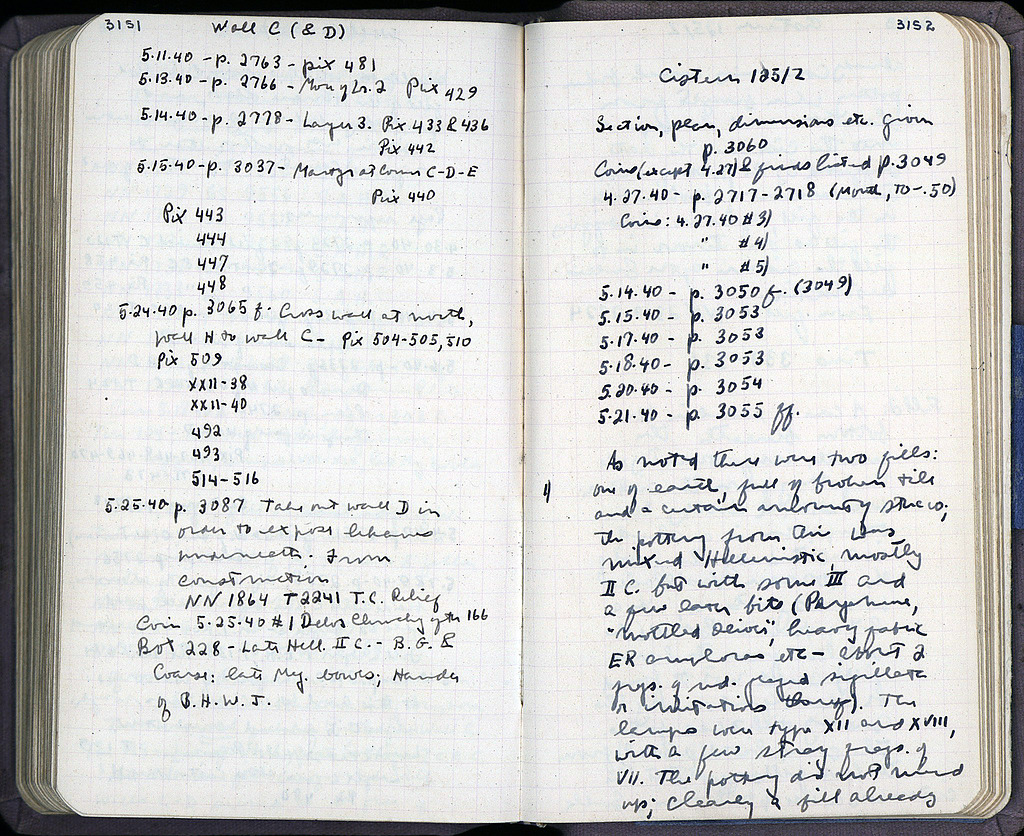 3151
Wall C (& D)
5.11.40 - p. 2763 - pix 481
5.13.40 - p. 2766 - Pix 429
5.14.40 - p. 2778 - Layer 3. Pix 433 & 436
Pix 442
5.15.40 - p. 3037 - at corner C-D-E
Pix 440
Pix 443
444
447
448
5.24.40 p. 3065 f. Cross wall at north,
wall H to wall C - Pix 504-505, 510
Pix 509
XXII-38
XXII-40
492
493
514-516
5.25.40 p. 3087 Take out wall D in
order to expose
underneath. From
construction
NN 1864 T 2241 T.C. Relief
Coin 5.25.40 #1 Delos 166
Box 228 - Late Hell. II C. - B.G. &
Coarse: late Meg. bowls; Handle
of B.H.W.J.
3152
Cistern 125/2
Section, plan, dimensions etc. given
p. 3060
Coins (except 4.27) & finds listed p. 3049
4.27.40 - p. 2717-2718 (Mouth, TO -.50)
Coins: 4.27.40 #3)
" #4)
" #5)
5.14.40 - p. 3050 f. (3049)
5.15.40 - p. 3053
5.17.40 - p. 3053
5.18.40 - p. 3053
5.20.40 - p. 3054
5.21.40 - p. 3055 ff.
As noted there were two fills:
one of earth, full of broken tile
and a certain amount of stucco;
the pottery from this was
mixed Hellenistic, mostly
II C. but with some III and
a few later bits (Pergamene,
"mottled ", heavy fabric
ER amphoras etc - about 2
frgs. of red glazed sigillata
or imitations ). The
lamps were type XII and XVIII,
with a few stray frags. of
VII. The pottery did not mend
up; clearly a fill already